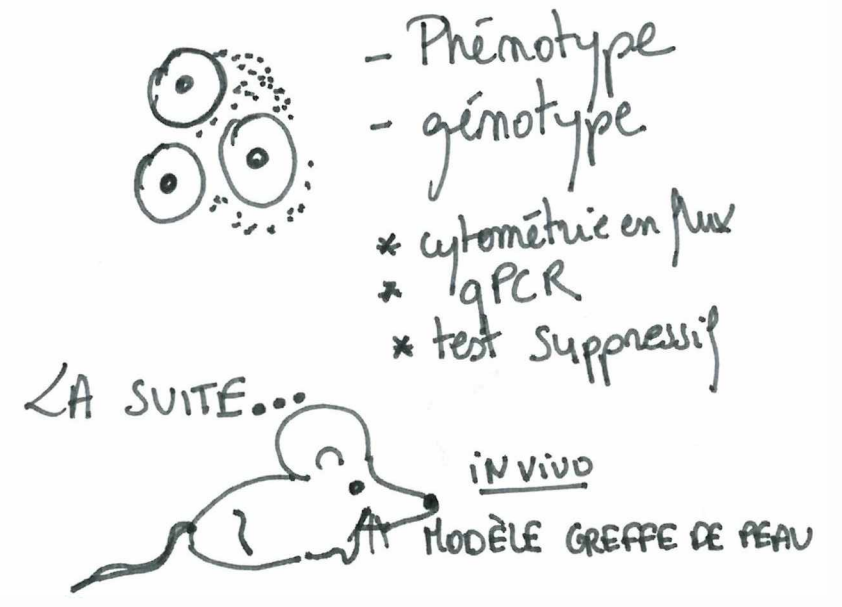 - Phénotype
- génotype
* cytométrie en flux
* qPCR
* test suppressif
LA SUITE...
IN VIVO
MODÈLE GREFFE DE PEAU